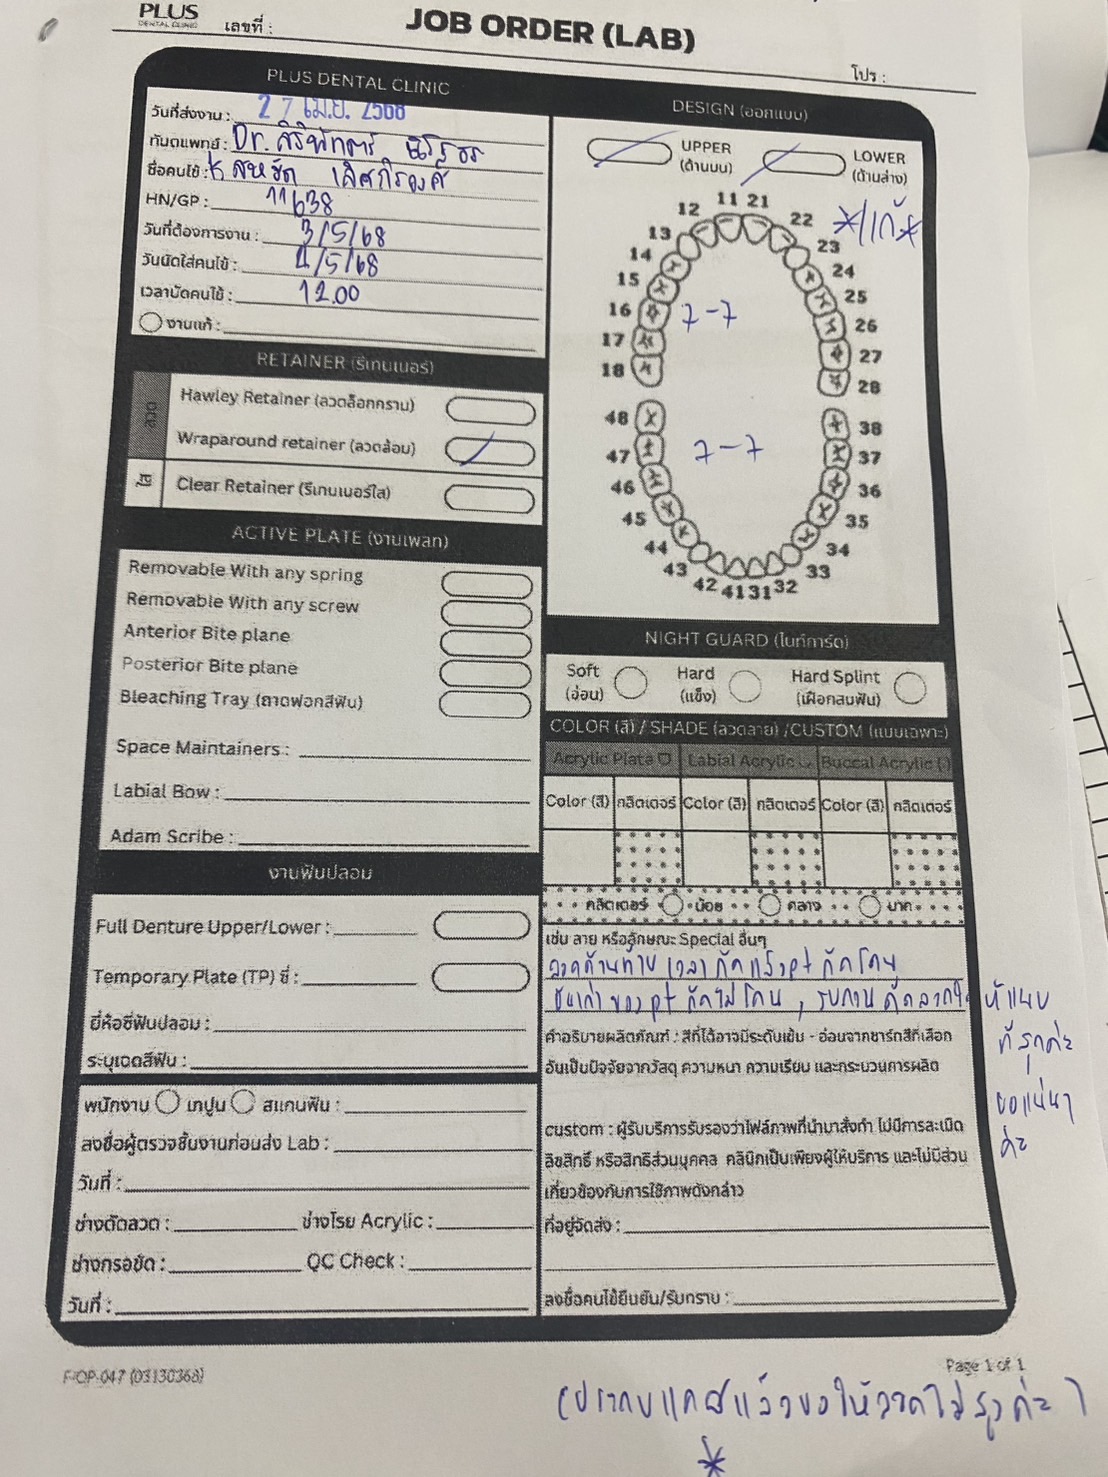 PLUS
DENTAL CLINIC
เลขที่ :
JOB ORDER (LAB)
โปร :
PLUS DENTAL CLINIC
วันที่ส่งงาน : 27 เม.ย. 2568
ทันตแพทย์ : Dr.
ชื่อคนไข้ :
HN/GP : 11638
วันที่ต้องการงาน : 3/5/68
วันนัดใส่คนไข้ : 4/5/68
เวลานัดคนไข้ : 12.00
งานแก้ :
RETAINER (รีเทนเนอร์)
ลวด
Hawley Retainer (ลวดล็อกกราม)
Wraparound retainer (ลวดล้อม)
ใส
Clear Retainer (รีเทนเนอร์ใส)
ACTIVE PLATE (งานเพลท)
Removable With any spring
Removable With any screw
Anterior Bite plane
Posterior Bite plane
Bleaching Tray (ถาดฟอกสีฟัน)
Space Maintainers :
Labial Bow :
Adam Scribe :
งานฟันปลอม
Full Denture Upper/Lower :
Temporary Plate (TP) ซี่ :
ยี่ห้อซี่ฟันปลอม :
ระบุเฉดสีฟัน :
พนักงาน เทปูน สแกนฟัน :
ลงชื่อผู้ตรวจชิ้นงานก่อนส่ง Lab :
วันที่ :
ช่างดัดลวด : ช่างโรย Acrylic :
ช่างกรอขัด : QC Check :
วันที่ :
DESIGN (ออกแบบ)
UPPER
(ด้านบน)
LOWER
(ด้านล่าง)
*แก้*
11 21
12 22
13 23
14 24
15 25
16 7-7 26
17 27
18 28
48 38
47 7-7 37
46 36
45 35
44 34
43 33
42 41 31 32
NIGHT GUARD (ไนท์การ์ด)
Soft
(อ่อน)
Hard
(แข็ง)
Hard Splint
(เฝือกสบฟัน)
COLOR (สี) / SHADE (ลวดลาย) /CUSTOM (แบบเฉพาะ)
Acrylic Plate Labial Acrylic Buccal Acrylic ( )
Color (สี) กลิตเตอร์ Color (สี) กลิตเตอร์ Color (สี) กลิตเตอร์
กลิตเตอร์ น้อย กลาง มาก
เช่น ลาย หรือลักษณะ Special อื่นๆ
ลวดด้านท้าย เวลากัดแล้ว pt กัดโดน
ชิ้นเก่าของ pt กัดไม่โดน , รบกวนดัดลวดให้แนบ
ที่สุดค่ะ
ขอแน่นๆ
ค่ะ
คำอธิบายผลิตภัณฑ์ : สีที่ได้อาจมีระดับเข้ม - อ่อนจากชาร์ตสีที่เลือก
อันเป็นปัจจัยจากวัสดุ ความหนา ความเรียบ และกระบวนการผลิต
custom : ผู้รับบริการรับรองว่าไฟล์ภาพที่นำมาสั่งทำ ไม่มีการละเมิด
ลิขสิทธิ์ หรือสิทธิส่วนบุคคล คลินิกเป็นเพียงผู้ให้บริการ และไม่มีส่วน
เกี่ยวข้องกับการใช้ภาพดังกล่าว
ที่อยู่จัดส่ง :
ลงชื่อคนไข้ยืนยัน/รับทราบ :
F-OP-047 (03130368)
Page 1 of 1
แล้วขอให้ลวดไม่สูงค่ะ )
*